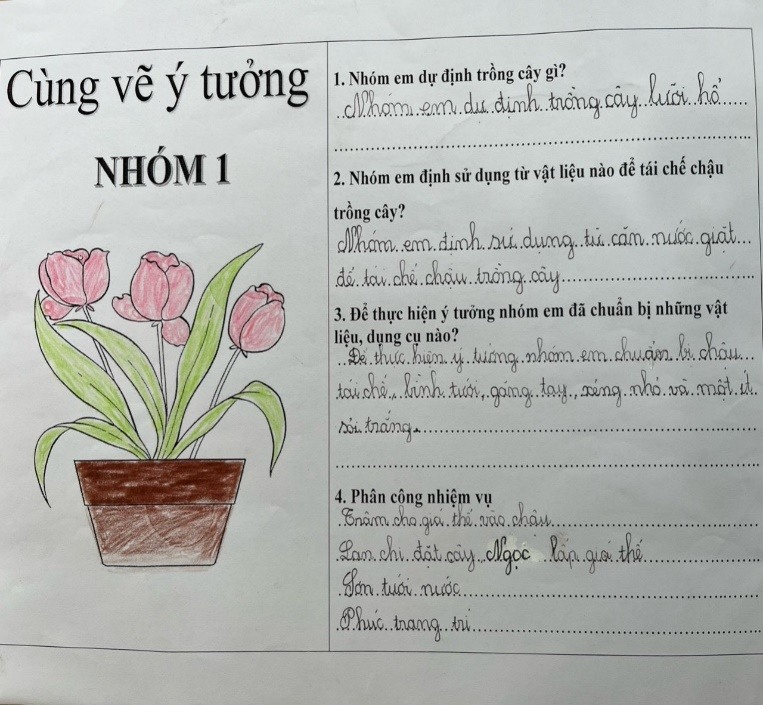 Cùng vẽ ý tưởng
NHÓM 1
1. Nhóm em dự định trồng cây gì?
Nhóm em dự định trồng cây lưỡi hổ
2. Nhóm em định sử dụng từ vật liệu nào để tái chế chậu
trồng cây?
Nhóm em định sử dụng từ cán nước giặt
để tái chế chậu trồng cây
3. Để thực hiện ý tưởng nhóm em đã chuẩn bị những vật
liệu, dụng cụ nào?
Để thực hiện ý tưởng nhóm em chuẩn bị chậu
tái chế, bình tưới, găng tay, xẻng nhỏ và một ít
sỏi trắng.
4. Phân công nhiệm vụ
Trâm cho giá thể vào chậu
Lan chi đặt cây, Ngọc lấp giá thể
Sơn tưới nước
Phúc trang trí